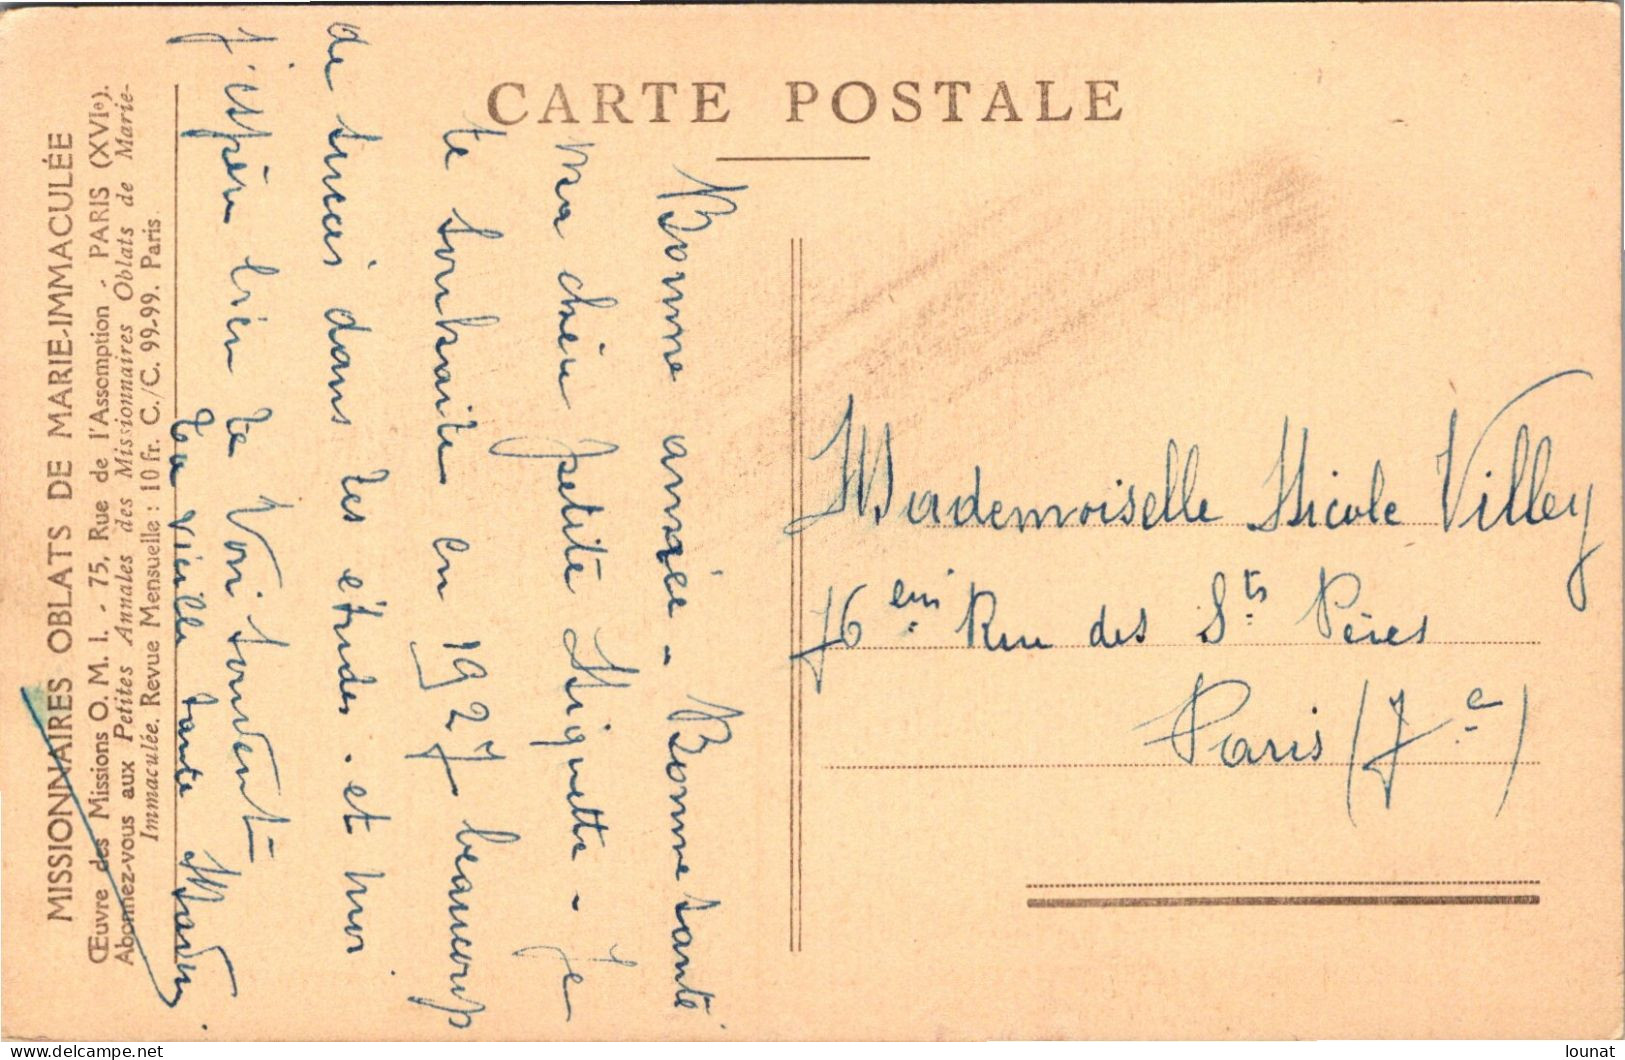 CARTE POSTALE
MISSIONNAIRES OBLATS DE MARIE-IMMACULÉE
Œuvre des Missions O. M. I. - 75, Rue de l'Assomption - PARIS (XVIe).
Abonnez-vous aux Petites Annales des Missionnaires Oblats de Marie-
Immaculée. Revue Mensuelle : 10 fr. C./C. 99-99. Paris.
Bonne année - Bonne santé
Ma chère petite Niquette - Je
te souhaite en 1927 beaucoup
de succès dans tes études. et moi
j'espère bien te voir souvent -
ta vieille tante
Mademoiselle Nicole Villey
76 Rue des Sts Pères
Paris (7e)
delcampe.net
lounat